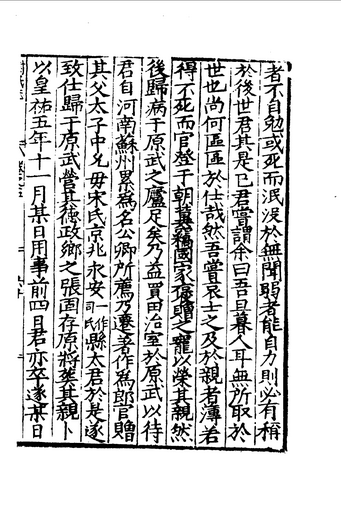 者不自勉或死而泯沒於無聞弱者能自力則必有稱
於後世君其是已君嘗謂余曰吾旦暮人耳無所取於
世也尚何區區於仕哉然吾嘗哀士之及於親者薄若
得不死而官登于朝冀竊國家褒贈之寵以榮其親然
後歸病于原武之廬足矣乃益買田治室於原武以待
君自河南蘇州累爲名公卿所薦乃遷著作爲郎官贈
其父太子中允母宋氏京兆永安一作司氏縣太君於是遂
致仕歸于原武營其德政鄉之張固存原將葬其親卜
以皇祐五年十一月某日用事前四日君亦卒遂某日